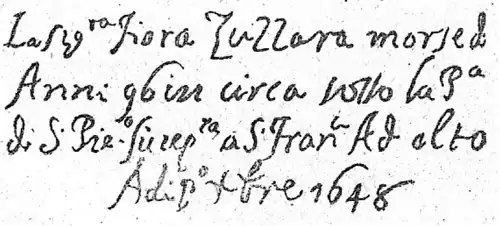 La sigra Fiora Zuzzara morse d
Anni 96 in circa sotto la Pa
di S. Pieo. a S. Franco Ad alto
Adi po Xbre 1648